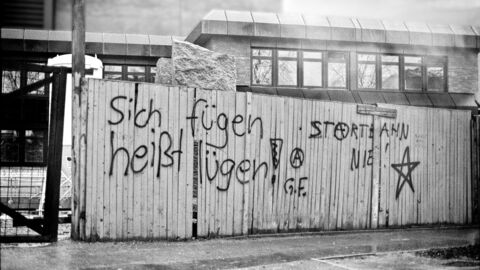 Sich fügen
heißt lügen!
Ⓐ
G.E.
STARTBAHN
NIE!